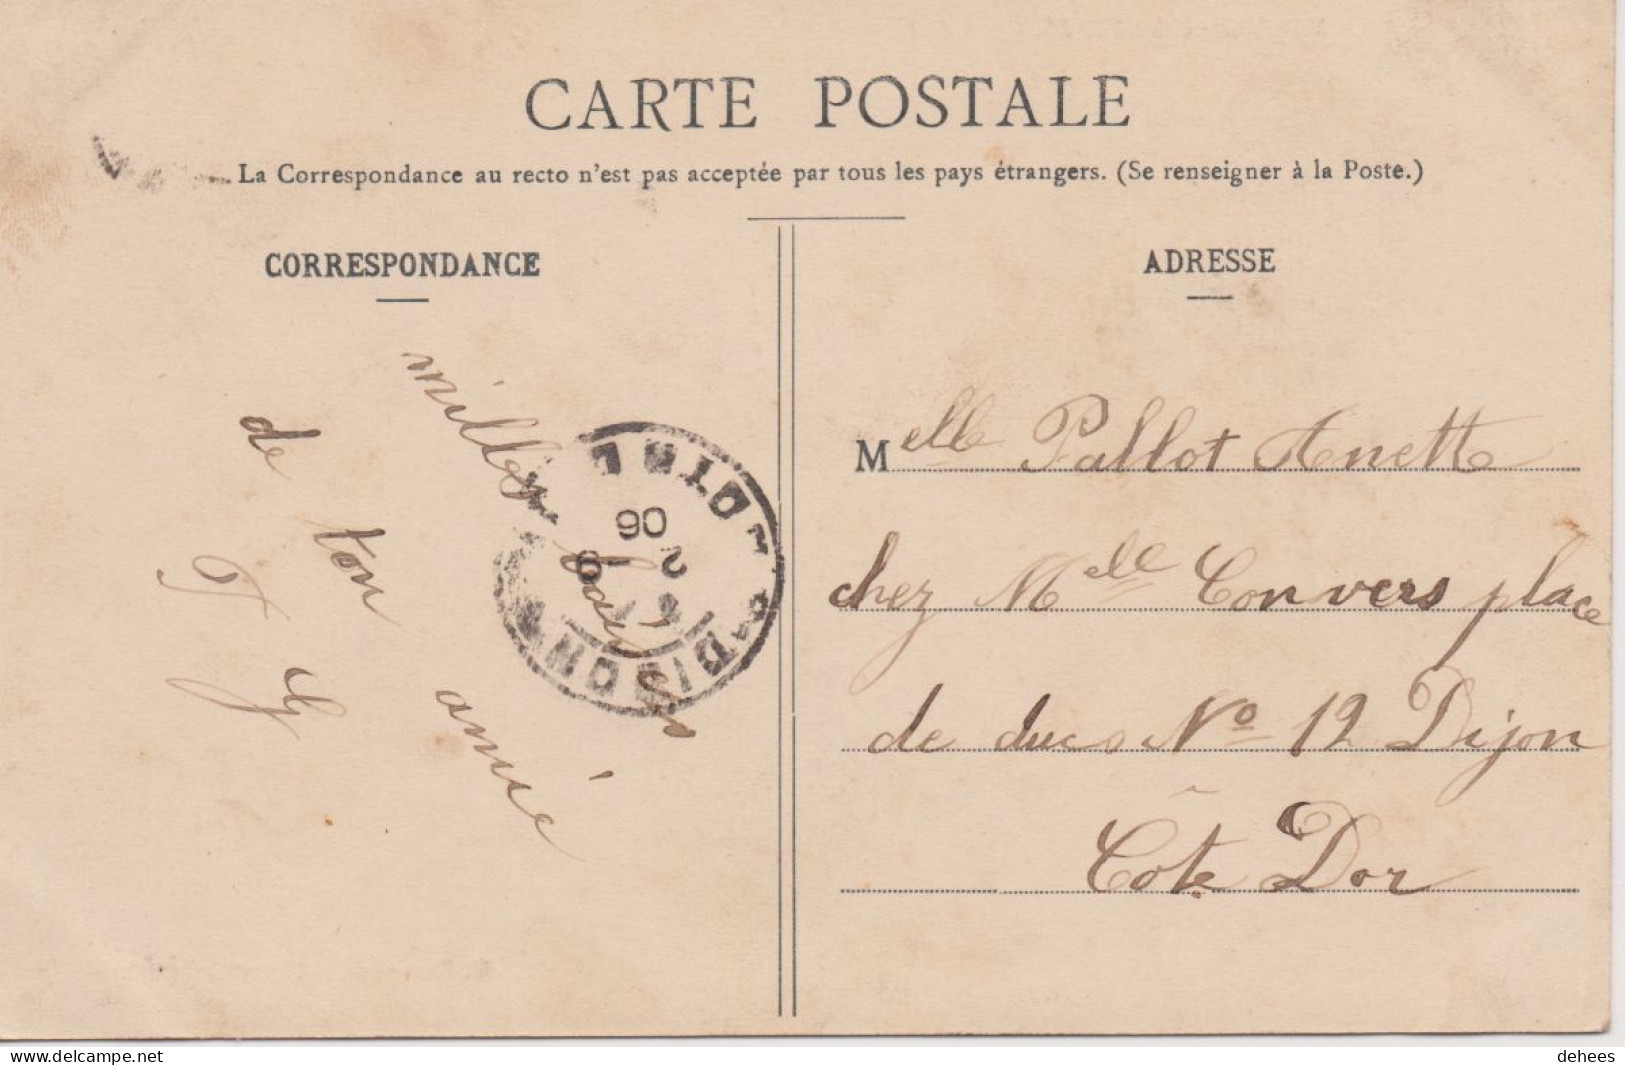 CARTE POSTALE
La Correspondance au recto n'est pas acceptée par tous les pays étrangers. (Se renseigner à la Poste.)
CORRESPONDANCE
milles baisers
de ton amie
ADRESSE
Melle Pallot Anette
chez Melle Convers place
de ducs No 12 Dijon
Côte Dor
DIJON
COTE D'OR
2
06
www.delcampe.net
dehees